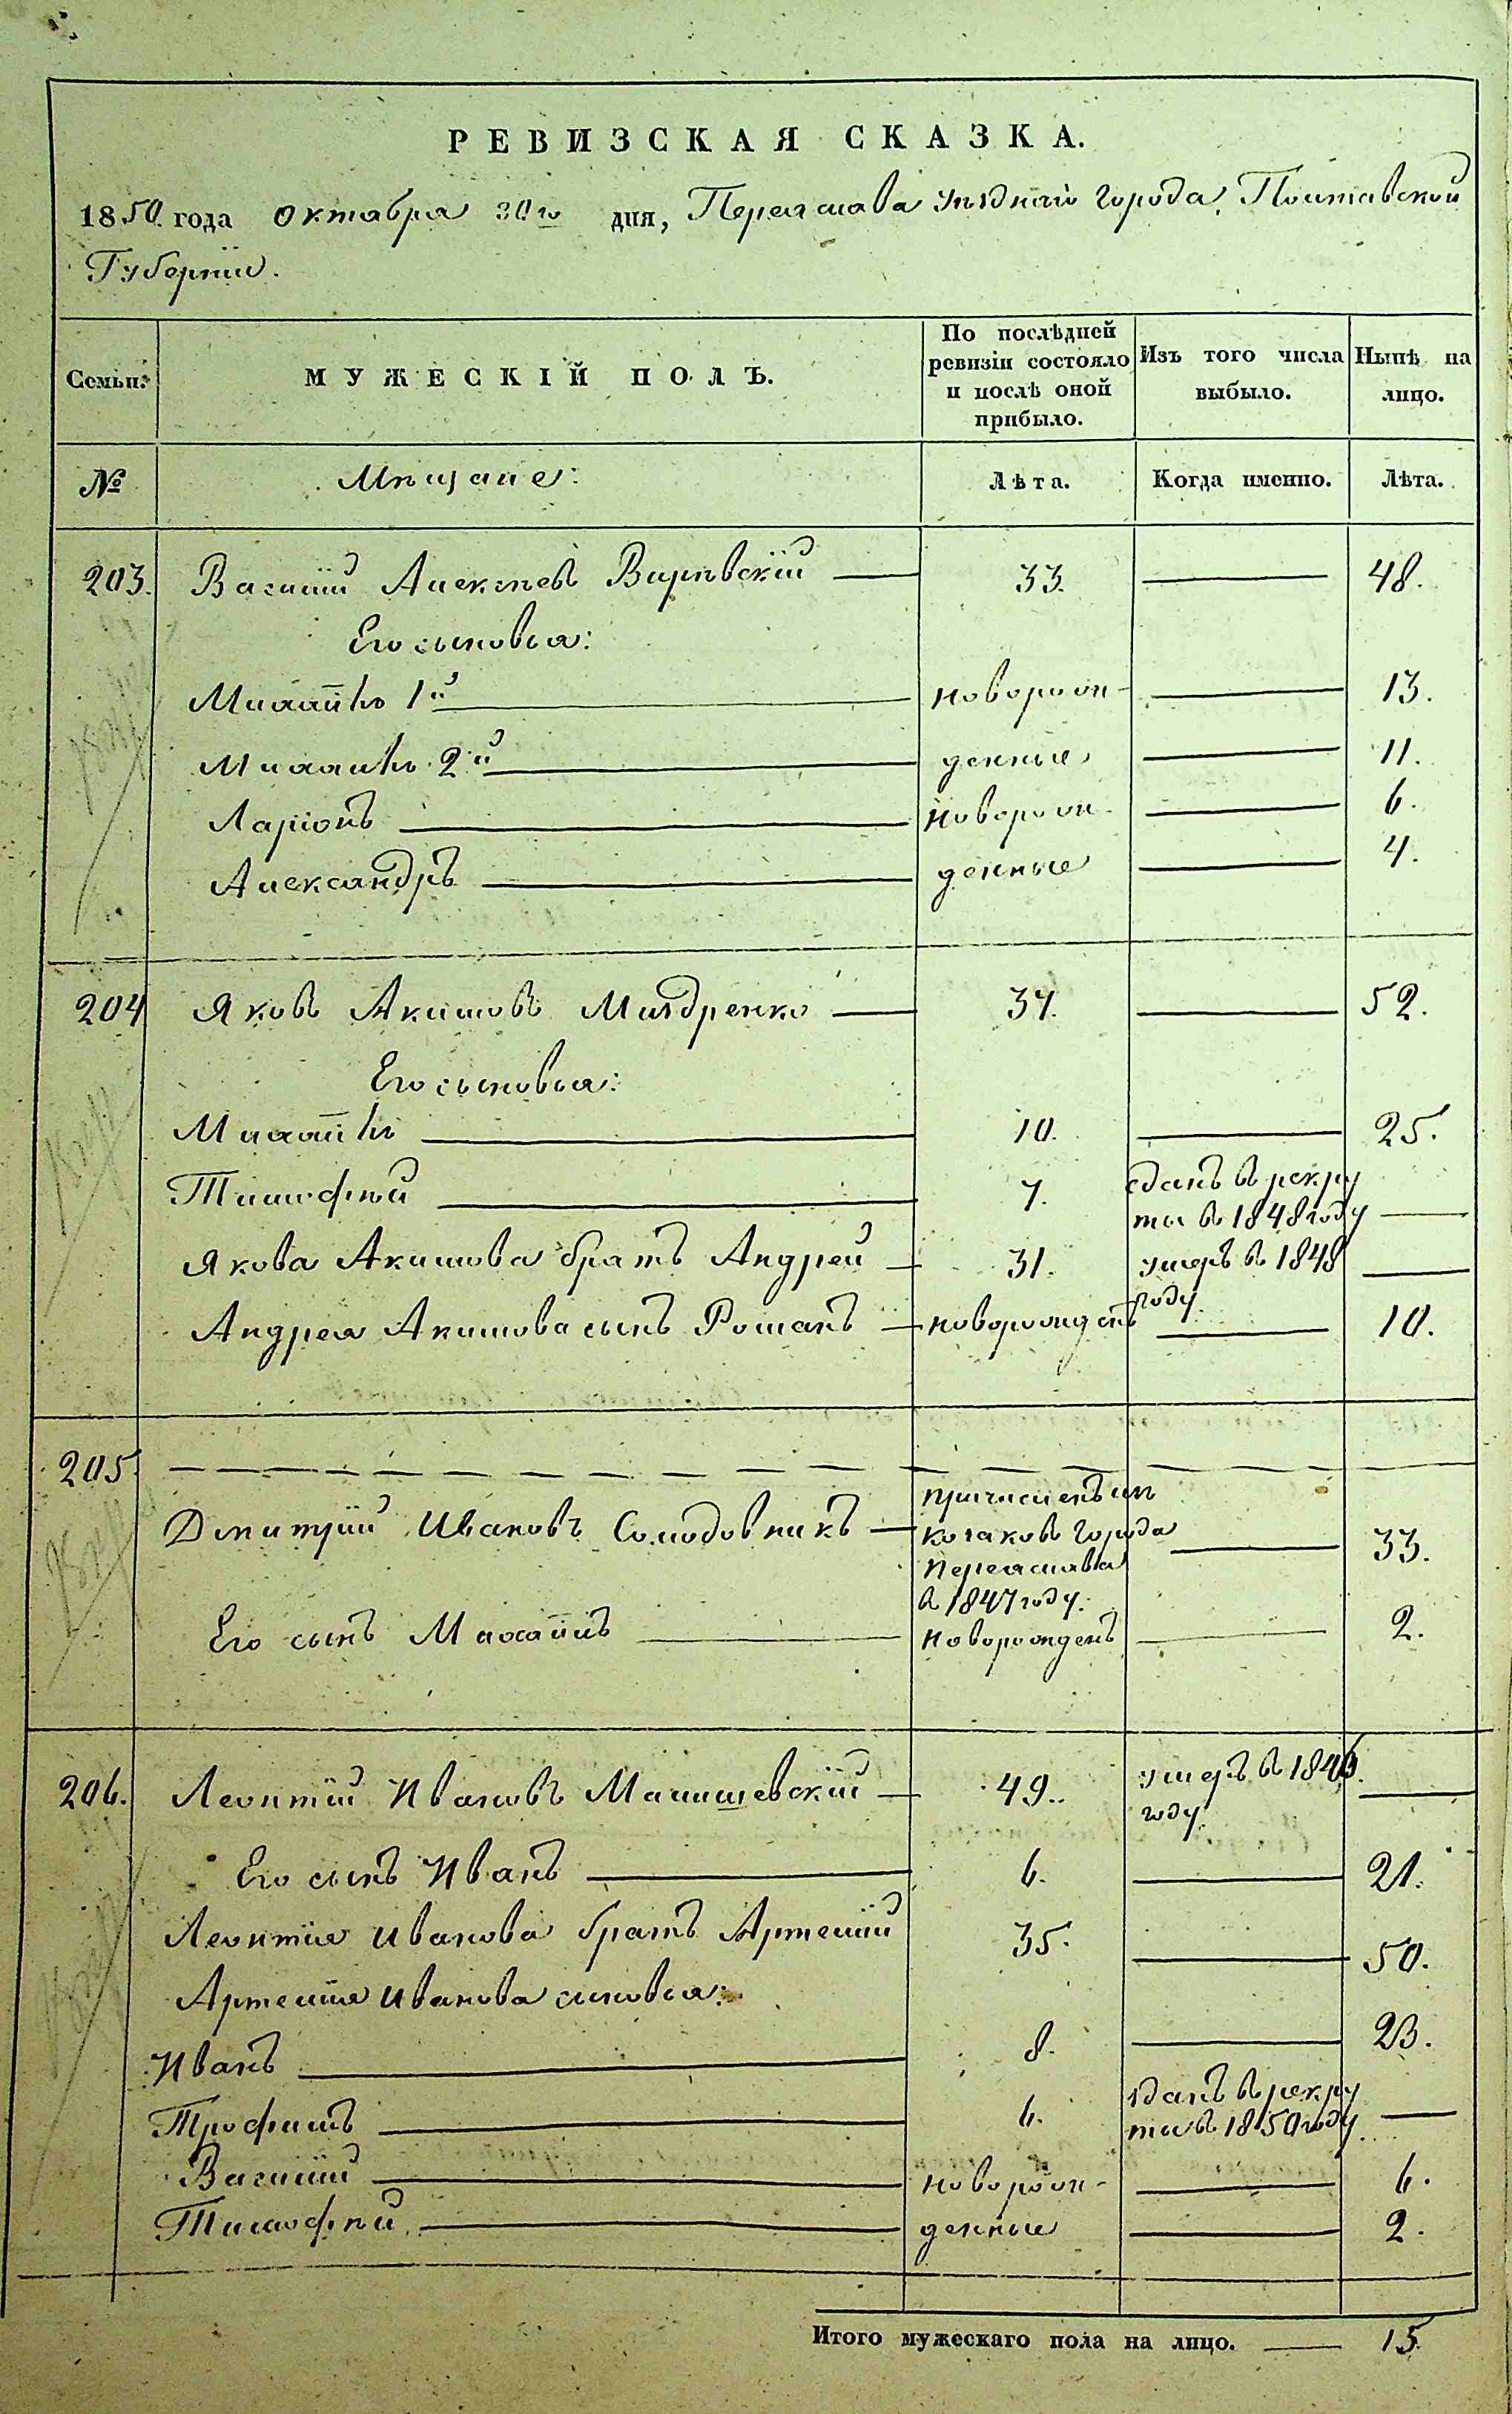 РЕВИЗСКАЯ СКАЗКА.
1850 года октября 30го дня, Переяслава уѣзднаго города, Полтавской
Губерніи.
Семьи. МУЖЕСКІЙ ПОЛЪ. По послѣдней ревизіи состояло и послѣ оной прибыло. Изъ того числа выбыло. Нынѣ на лицо.
№ Мѣщане: Лѣта. Когда именно. Лѣта.
203. Василій Алексѣевъ 33. 48.
Его сыновья:
Михаилъ 1й новорож- 13.
Михаилъ 2й денные 11.
Ларіонъ новорож- 6.
Александръ денные 4.
204 Яковъ Акимовъ 37. 52.
Его сыновья:
Михаилъ 10. 25.
Тимофѣй 7. сданъ въ рекру
ты въ 1848 году
Якова Акимова братъ Андрей 31. умеръ въ 1848
году
Андрея Акимова сынъ Романъ новорожденъ 10.
205.
Дмитрій Ивановъ Солодовникъ причисленъ изъ
козаковъ города 33.
Переяслава
въ 1847 году.
Его сынъ Михаилъ новорожденъ 2.
206. Леонтій Ивановъ Малишевскій 49. умеръ въ 1846.
году.
Его сынъ Иванъ 6. 21.
Леонтія Иванова братъ Артемій 35. 50.
Артемія Иванова сыновья:
Иванъ 8. 23.
Трофимъ 6. сданъ въ рекру
ты въ 1850 году.
Василій новорож- 6.
Тимофѣй денные 2.
Итого мужескаго пола на лицо. 15.